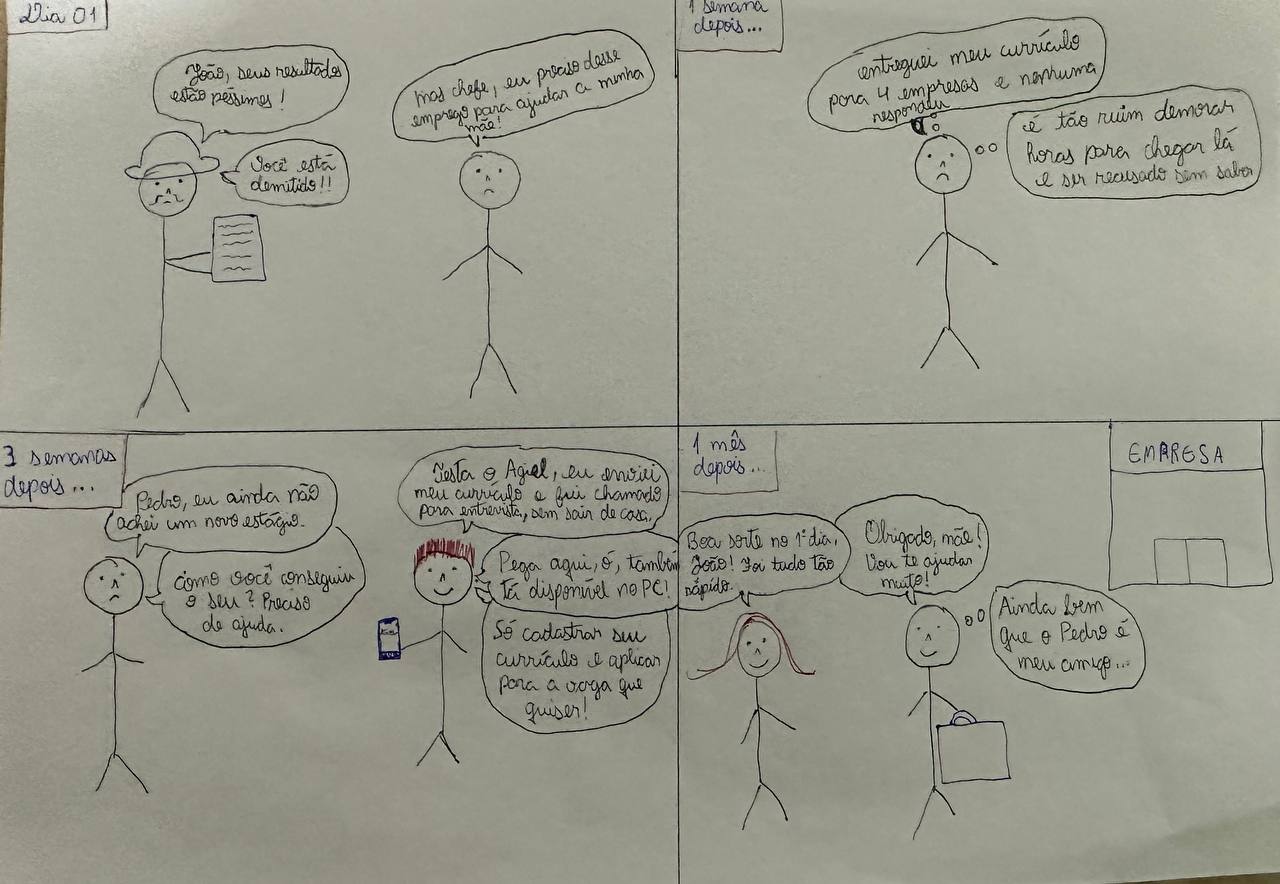 Dia 01
João, seus resultados
estão péssimos!
Você está
demitido!!
mas chefe, eu preciso desse
emprego para ajudar a minha
mãe!
1 semana
depois...
entreguei meu currículo
para 4 empresas e nenhuma
respondeu
é tão ruim demorar
horas para chegar lá
e ser recusado sem saber
3 semanas
depois...
Pedro, eu ainda não
achei um novo estágio.
Como você conseguiu
o seu? Preciso
de ajuda.
Testa o Agiel, eu enviei
meu currículo e fui chamado
para entrevista, sem sair de casa.
Pega aqui, ó, também
tá disponível no PC!
Só cadastrar seu
currículo e aplicar
para a vaga que
quiser!
1 mês
depois...
Boa sorte no 1º dia,
João! Foi tudo tão
rápido.
Obrigado, mãe!
Vou te ajudar
muito!
Ainda bem
que o Pedro é
meu amigo...
EMPRESA